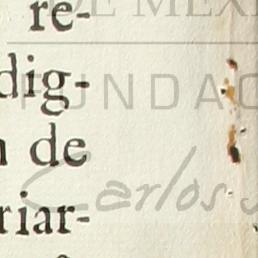 DE MEXI
re-
FUNDAC
dig-
de
Carlos
riar-